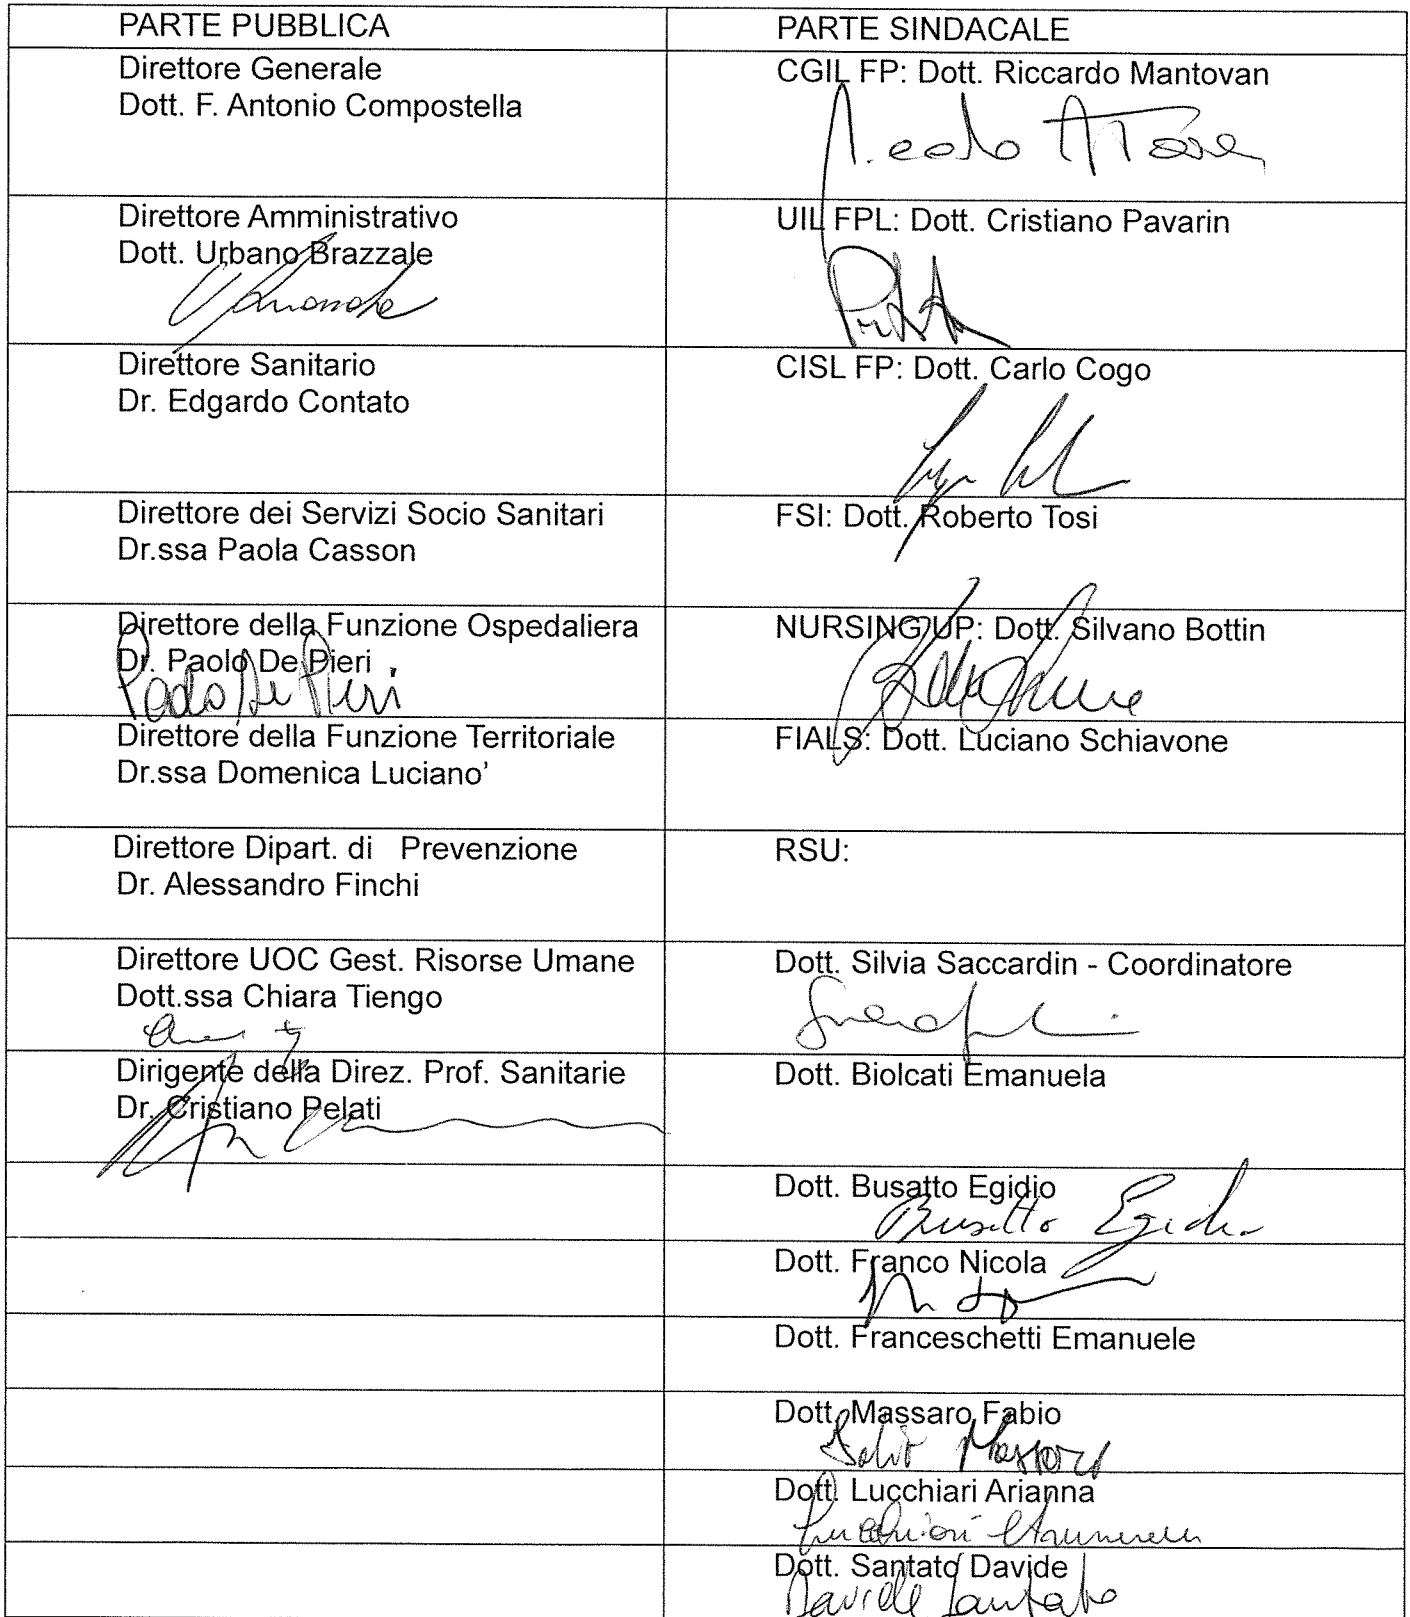 PARTE PUBBLICA
PARTE SINDACALE
Direttore Generale
Dott. F. Antonio Compostella
CGIL FP: Dott. Riccardo Mantovan
Direttore Amministrativo
Dott. Urbano Brazzale
UIL FPL: Dott. Cristiano Pavarin
Direttore Sanitario
Dr. Edgardo Contato
CISL FP: Dott. Carlo Cogo
Direttore dei Servizi Socio Sanitari
Dr.ssa Paola Casson
FSI: Dott. Roberto Tosi
Direttore della Funzione Ospedaliera
Dr. Paolo De Pieri
Paolo De Pieri
NURSING UP: Dott. Silvano Bottin
Direttore della Funzione Territoriale
Dr.ssa Domenica Luciano’
FIALS: Dott. Luciano Schiavone
Direttore Dipart. di Prevenzione
Dr. Alessandro Finchi
RSU:
Direttore UOC Gest. Risorse Umane
Dott.ssa Chiara Tiengo
Dott. Silvia Saccardin - Coordinatore
Dirigente della Direz. Prof. Sanitarie
Dr. Cristiano Pelati
Dott. Biolcati Emanuela
Dott. Busatto Egidio
Busatto Egidio
Dott. Franco Nicola
Dott. Franceschetti Emanuele
Dott. Massaro Fabio
Fabio Massaro
Dott. Lucchiari Arianna
Lucchiari Arianna
Dott. Santato Davide
Davide Santato